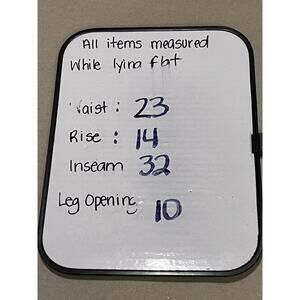 All items measured
While lying flat
Waist : 23
Rise : 14
Inseam 32
Leg Opening 10